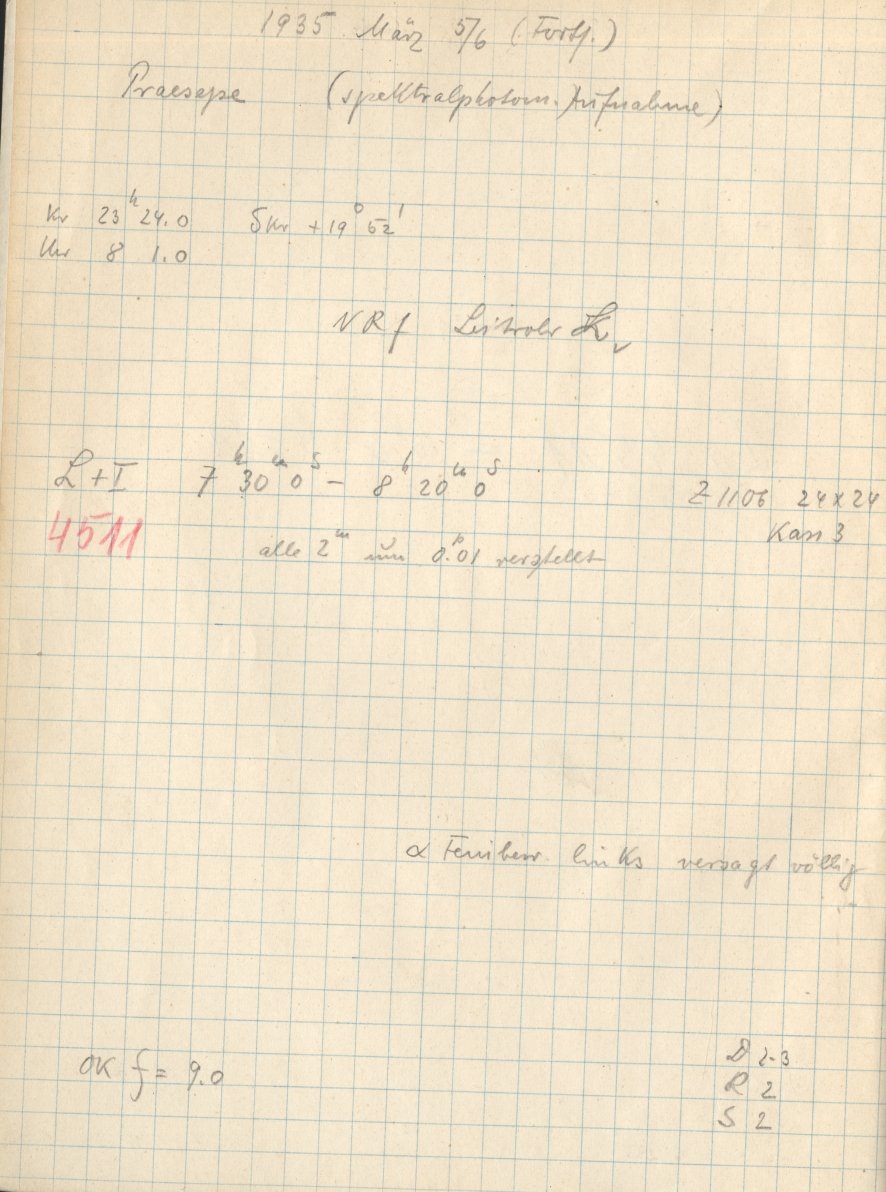 1935 März 5/6 (Forts.)
Praesepe (spektralphotom. Aufnahme)
Kr 23ʰ 24.0 δKr +19° 52'
Uhr 8 1.0
NR f Leitrohr
L + I 7ʰ 30ᵐ 0ˢ – 8ʰ 20ᵐ 0ˢ
Z 1106 24 x 24
4511
Kass 3
alle 2ᵐ um 0.ᵖ01 verstellt
α Feinbew. links versagt völlig
OK f = 9.0
D 2-3
R 2
S 2